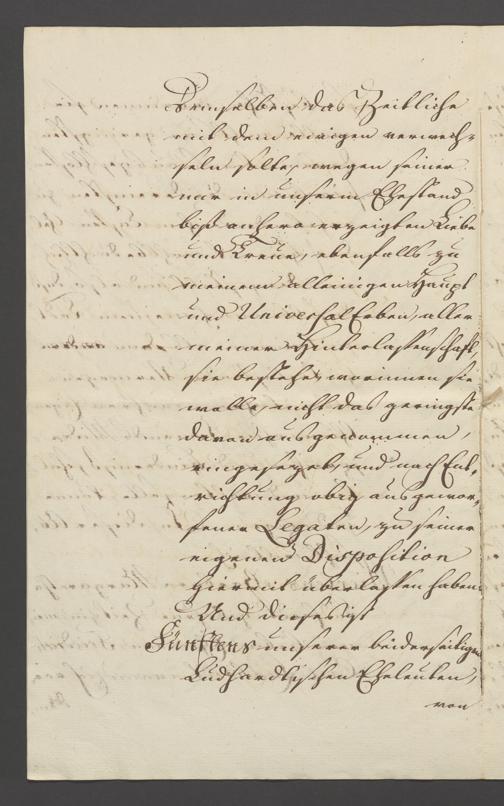 Demselben das Zeitliche
mit dem ewigen verwech=
seln solte, wegen seiner
mir in unserm Ehestand
biß anhero erzeigten Liebe
und Treue, ebenfalls zu
meinem alleinigen Haupt
und Universal Erben, aller
meiner Hinterlassenschafft,
sie bestehe worinnen sie
wolle, nicht das geringste
davon ausgenommen,
eingesezet, und nach Ent=
richtung obig ausgewor=
fener Legaten, zu seiner
eigenen Disposition
hiermit überlassen haben.
Und dieses ist
Fünfftens unserer beiderseitigen
Eheleuten,
von